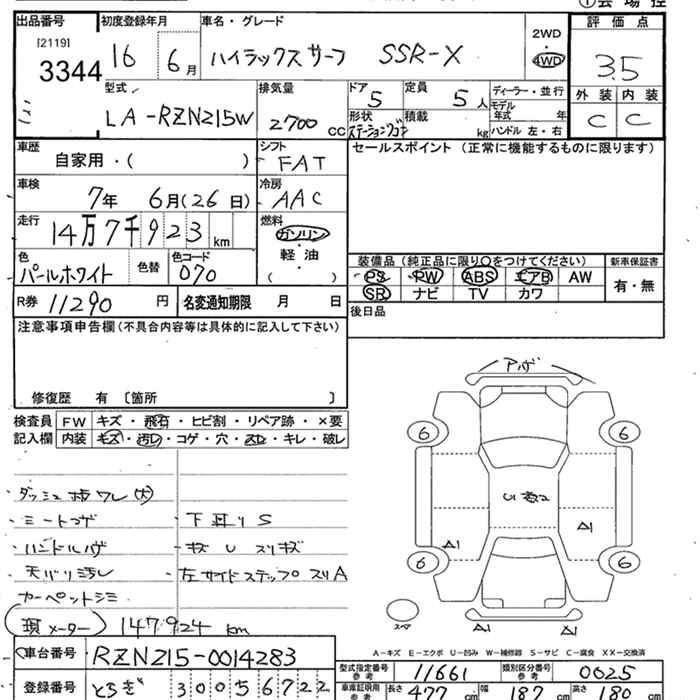 出品番号 初度登録年月 車名・グレード 2WD 評価点
[2119]
3344 16 6月 ハイラックスサーフ SSR-X 4WD 3.5
型式 排気量 ドア 定員 ディーラー・並行 外装 内装
ミ LA-RZN215W 2700CC 5 5人 モデル年式 年 C C
形状 積載 kg ハンドル 左・右
ステーションワゴン
車歴 シフト セールスポイント (正常に機能するものに限ります)
自家用・( ) FAT
車検 冷房
7年 6月(26日) AAC
走行 燃料
14万7千923km ガソリン
軽油
色 色替 色コード ( ) 装備品 (純正品に限り○をつけてください) 新車保証書
パールホワイト 070 PS PW ABS エアB AW 有・無
SR ナビ TV カワ
R券 11290円 名変通知期限 月 日 後日品
注意事項申告欄(不具合内容等は具体的に記入して下さい)
修復歴 有 〔箇所
検査員 FW キズ・飛石・ヒビ割・リペア跡・×要
記入欄 内装 キズ・汚レ・コゲ・穴・スレ・キレ・破レ
アハゲ
6 6
A1 A1
6 6
スペア
・ダッシュ ワレ(大)
・シートコゲ ・下廻りS
・ハンドルハゲ ・キズ U スリキズ
・天バリ汚レ ・左サイドステップスリA
カーペットシミ
(現メーター) 147924km
A-キズ E-エクボ U-凹み W-補修跡 S-サビ C-腐食 XX-交換済
車台番号 RZN215-0014283
型式指定番号 参考 11661 類別区分番号 参考 0025
登録番号 とちぎ 300 56722
車庫証明用 参考 長さ 477cm 幅 187cm 高さ 180cm